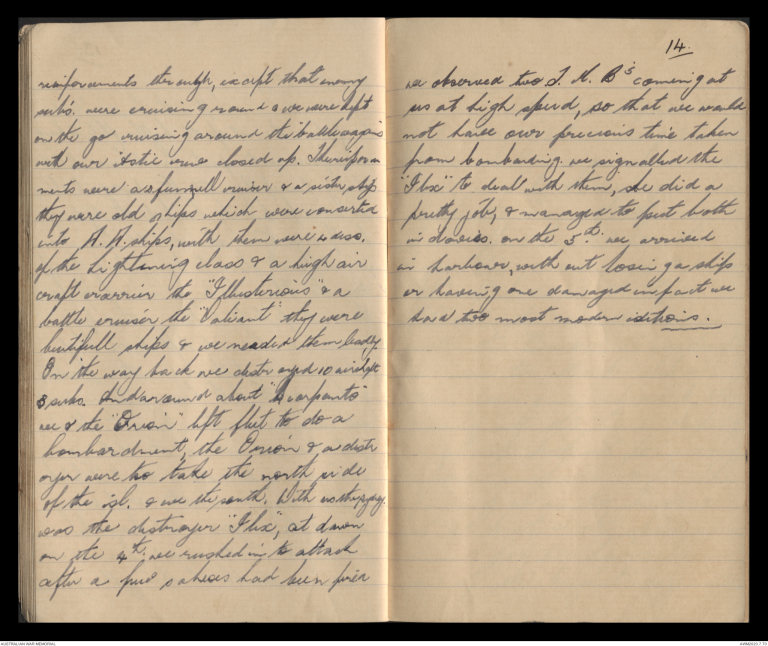 reinforcements through, except that enemy
subs. were cruising round & we were kept
on the go cruising around the battle wagons
with our Astic crews closed up. The reinforce
ments were a 2 funnell cruiser & a sister ship
they were old ships which were converted
into A.A. ships, with them were 4 diss.
of the Lightening class & a high air
craft crarrier the "Illusterious" & a
battle cruiser the "Valiant" they were
beutifull ships & we needed them badly.
On the way back we destroyed 10 aircraft
3 subs. and around about "Scarpanto"
we & the "Orion" left fleet to do a
bombardment, the Orion & a distr
oyer were too take the north side
of the isl. & we the south. With us
was the distroyer "Ilix", at dawn
on the 4th. we rushed in to attack
after a few salvoes had been fired
14.
we observed two T. M. Bs coming at
us at high speed, so that we would
not have our precious time taken
from bombarding. we signalled the
"Ilix" to deal with them, she did a
pretty job, & managed to put both
in davies. on the 5th. we arrived
in harbour, with out losing a ship
or having one damaged infact we
had two most modern additions.
AUSTRALIAN WAR MEMORIAL